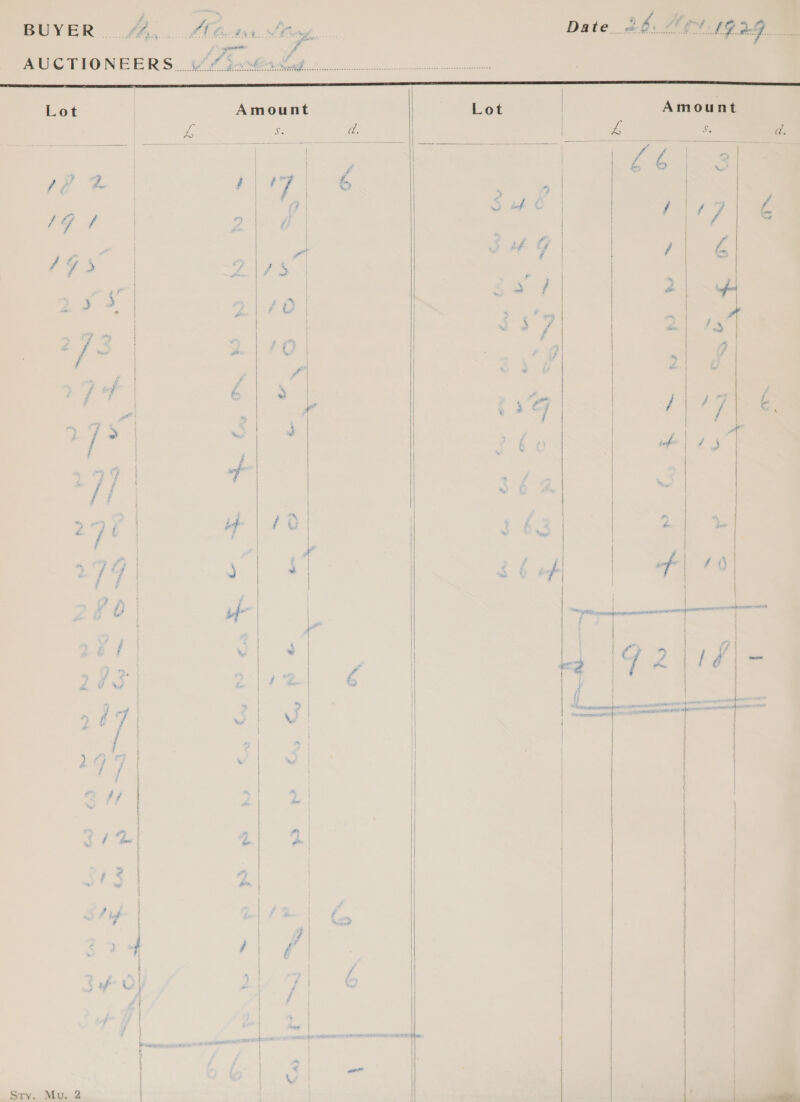 BUYER Mr. Ram Say Date 26. Nov. 1929
AUCTIONEERS
Lot Amount
£ s. d.
182 1 17 6
191 2 8
195 2 15
255 2 10
273 2 10
274 6 5
275 3 5
277 4
278 4 10
279 5 5
280 4
281 3 5
283 2 12 6
287 3 3
297 3 3
311 2 2
312 2 2
313 2
314 2 12 6
324 1 8
340 2 7 6
347 2 2
66 3 -
Lot Amount
£ s. d.
66 3
348 1 17 6
349 1 6
351 2 4
357 2 15
358 2 8
359 1 17 6.
360 4 15
362 3
363 2 2
364 4 10
£ 92 18 -
Sry. Mu. 2